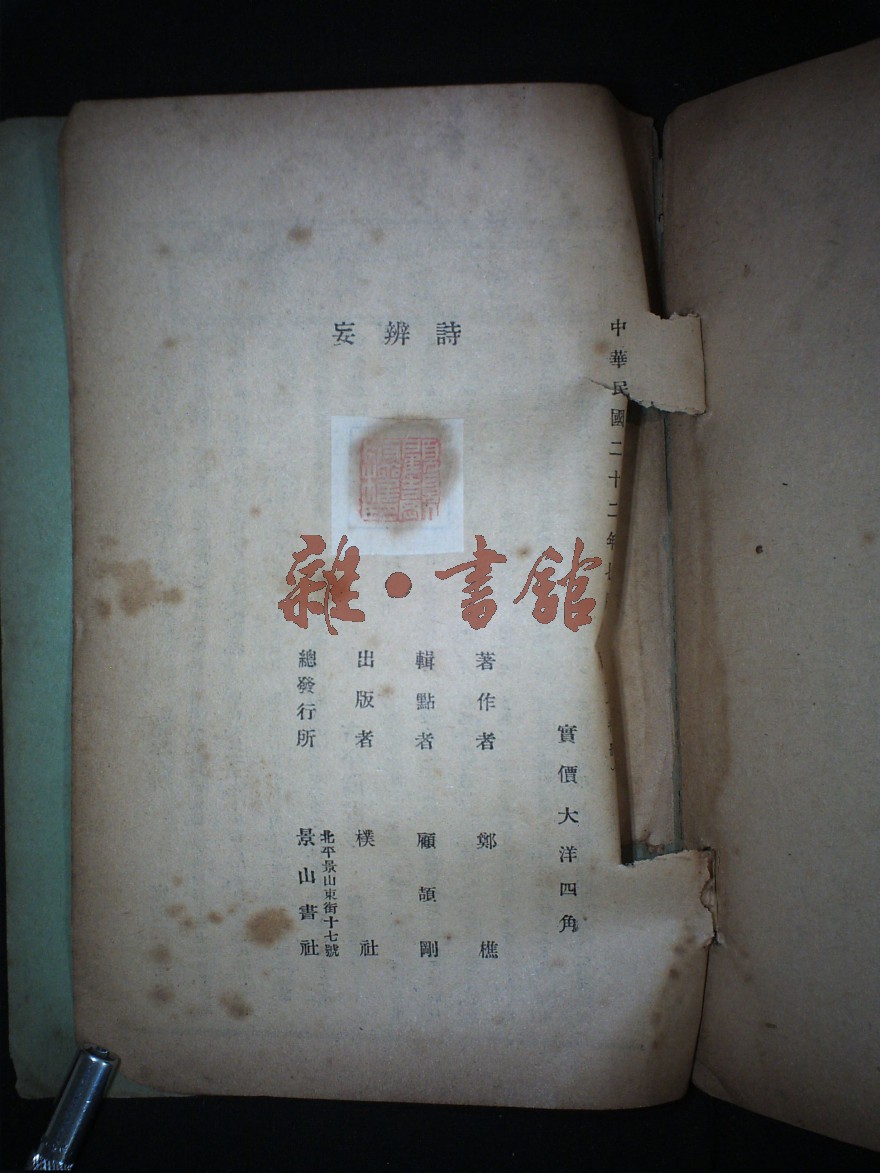 中華民國二十二年七
實價大洋四角
詩辨妄
著作者 鄭樵
輯點者 顧頡剛
出版者 樸社
總發行所 北平景山東街十七號
景山書社
雜·書館